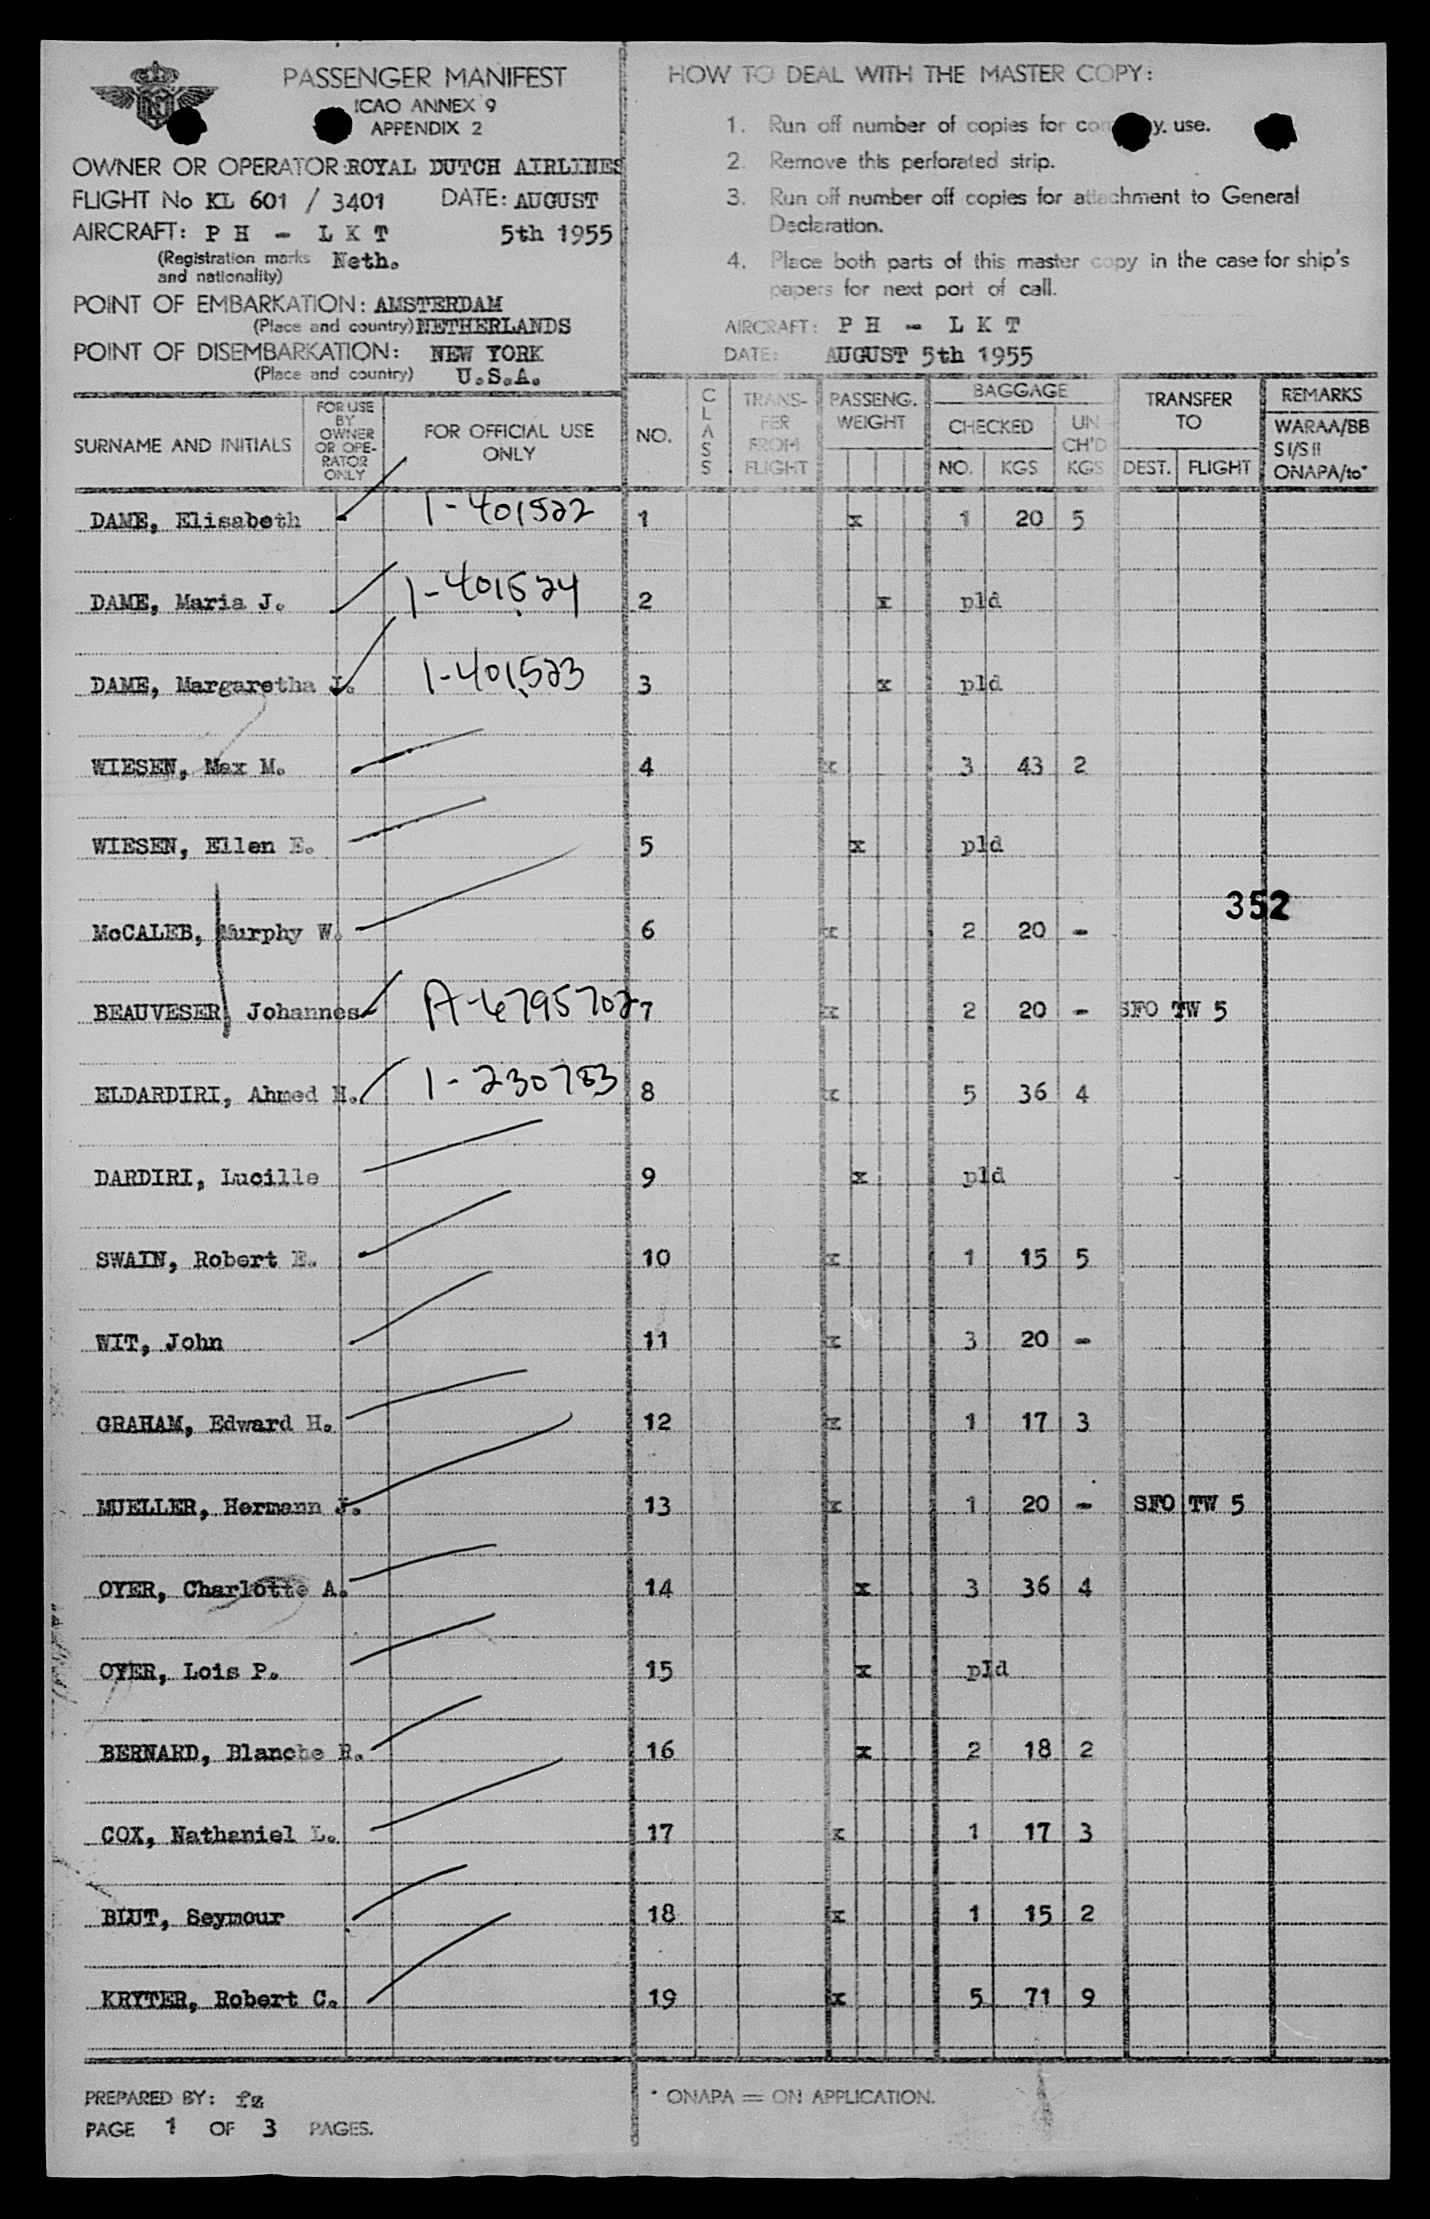 PASSENGER MANIFEST
ICAO ANNEX 9
APPENDIX 2
OWNER OR OPERATOR: ROYAL DUTCH AIRLINES
FLIGHT No KL 601 / 3401 DATE: AUGUST
AIRCRAFT: P H - L K T 5th 1955
(Registration marks Neth.
and nationality)
POINT OF EMBARKATION: AMSTERDAM
(Place and country) NETHERLANDS
POINT OF DISEMBARKATION: NEW YORK
(Place and country) U.S.A.
HOW TO DEAL WITH THE MASTER COPY:
1. Run off number of copies for company use.
2. Remove this perforated strip.
3. Run off number off copies for attachment to General
Declaration.
4. Place both parts of this master copy in the case for ship's
papers for next port of call.
AIRCRAFT: P H - L K T
DATE: AUGUST 5th 1955
SURNAME AND INITIALS
FOR USE
BY
OWNER
OR OPE-
RATOR
ONLY
FOR OFFICIAL USE
ONLY
NO.
CLASS
TRANS-
FER
FROM
FLIGHT
PASSENG.
WEIGHT
BAGGAGE
CHECKED
NO. KGS
UN
CH'D
KGS
TRANSFER
TO
DEST. FLIGHT
REMARKS
WARAA/BB
SI/SII
ONAPA/to*
DAME, Elisabeth 1-401522 1 x 1 20 5
DAME, Maria J. 1-401524 2 x pld
DAME, Margaretha J. 1-401523 3 x pld
WIESEN, Max M. 4 x 3 43 2
WIESEN, Ellen E. 5 x pld
352
McCALEB, Murphy W. 6 x 2 20 -
BEAUVESER, Johannes A-6795702 7 x 2 20 - SFO TW 5
ELDARDIRI, Ahmed H. 1-230783 8 x 5 36 4
DARDIRI, Lucille 9 x pld
SWAIN, Robert E. 10 x 1 15 5
WIT, John 11 x 3 20 -
GRAHAM, Edward H. 12 x 1 17 3
MUELLER, Hermann J. 13 x 1 20 - SFO TW 5
OYER, Charlotte A. 14 x 3 36 4
OYER, Lois P. 15 x pld
BERNARD, Blanche R. 16 x 2 18 2
COX, Nathaniel L. 17 x 1 17 3
BLUT, Seymour 18 x 1 15 2
KRYTER, Robert C. 19 x 5 71 9
PREPARED BY: fz
PAGE 1 OF 3 PAGES.
* ONAPA = ON APPLICATION.